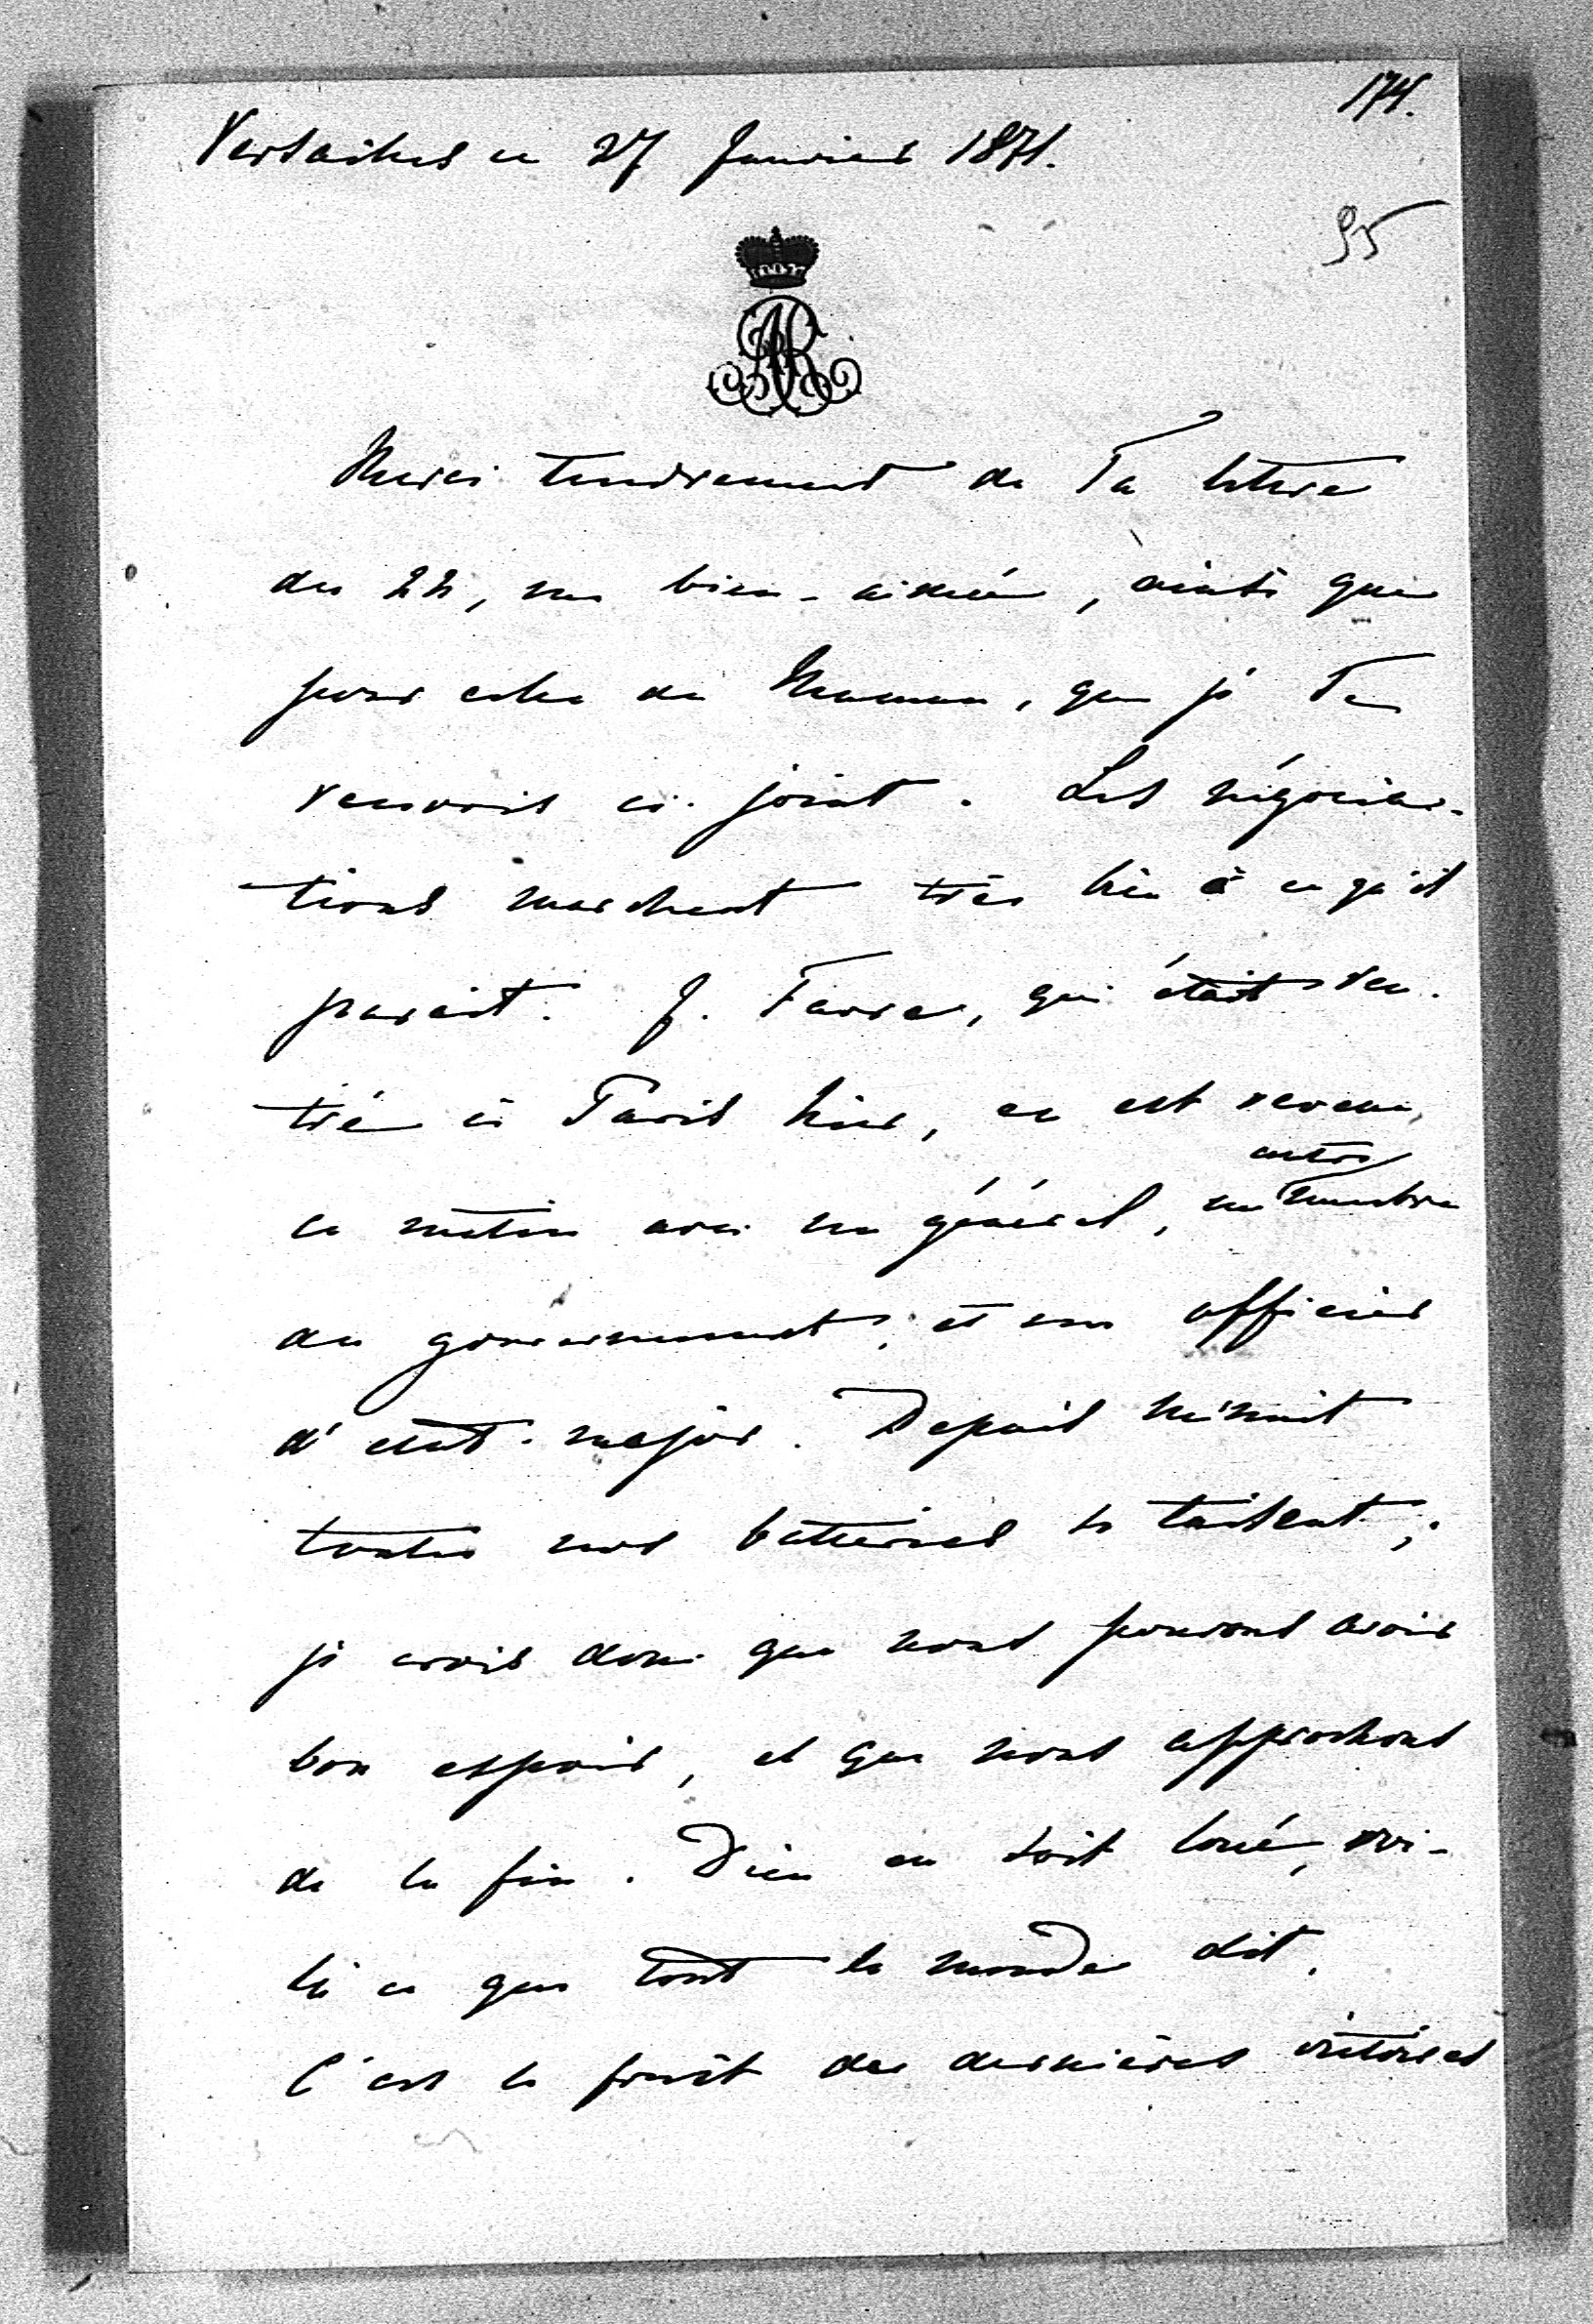 174.
Versailles ce 27 Janvier 1871.
95
Merci tendrement de Ta lettre
du 22, ma bien-aimée, ainsi que
pour celle de Maman, que je Te
renvois ci-joint. Les négocia-
tions marchent très bien à ce qu'il
parait. J. Favre, qui était ren-
tré à Paris hier, en est revenu
ce matin avec un général, un autre membre
du gouvernement, et un officier
d'etat-major. Depuis minuit
toutes nos batteries se taisent;
je crois donc que nous pouvons avoir
bon espoir, et que nous approchons
de la fin. Dieu en soit loué, voi-
là ce que tout le monde dit.
C'est le fruit des dernières victoires